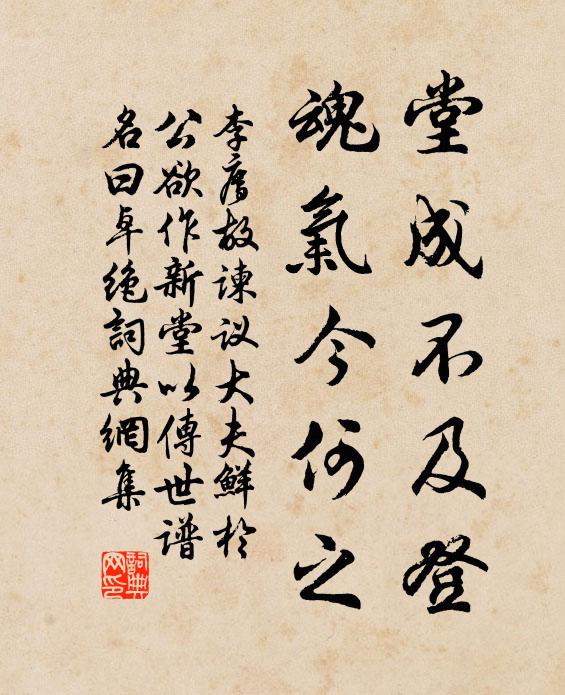 堂成不及登
魂氣今何之
李廌故諫议大夫鮮於
公欲作新堂以傳世譜
名曰卓绝詞典網集
詞典网印